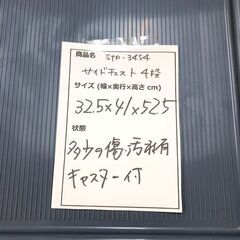 商品名 Stp-3454
サイドチェスト 4段
サイズ (幅×奥行×高さ cm)
32.5×41×52.5
状態
多少の傷・汚れ有
キャスター付